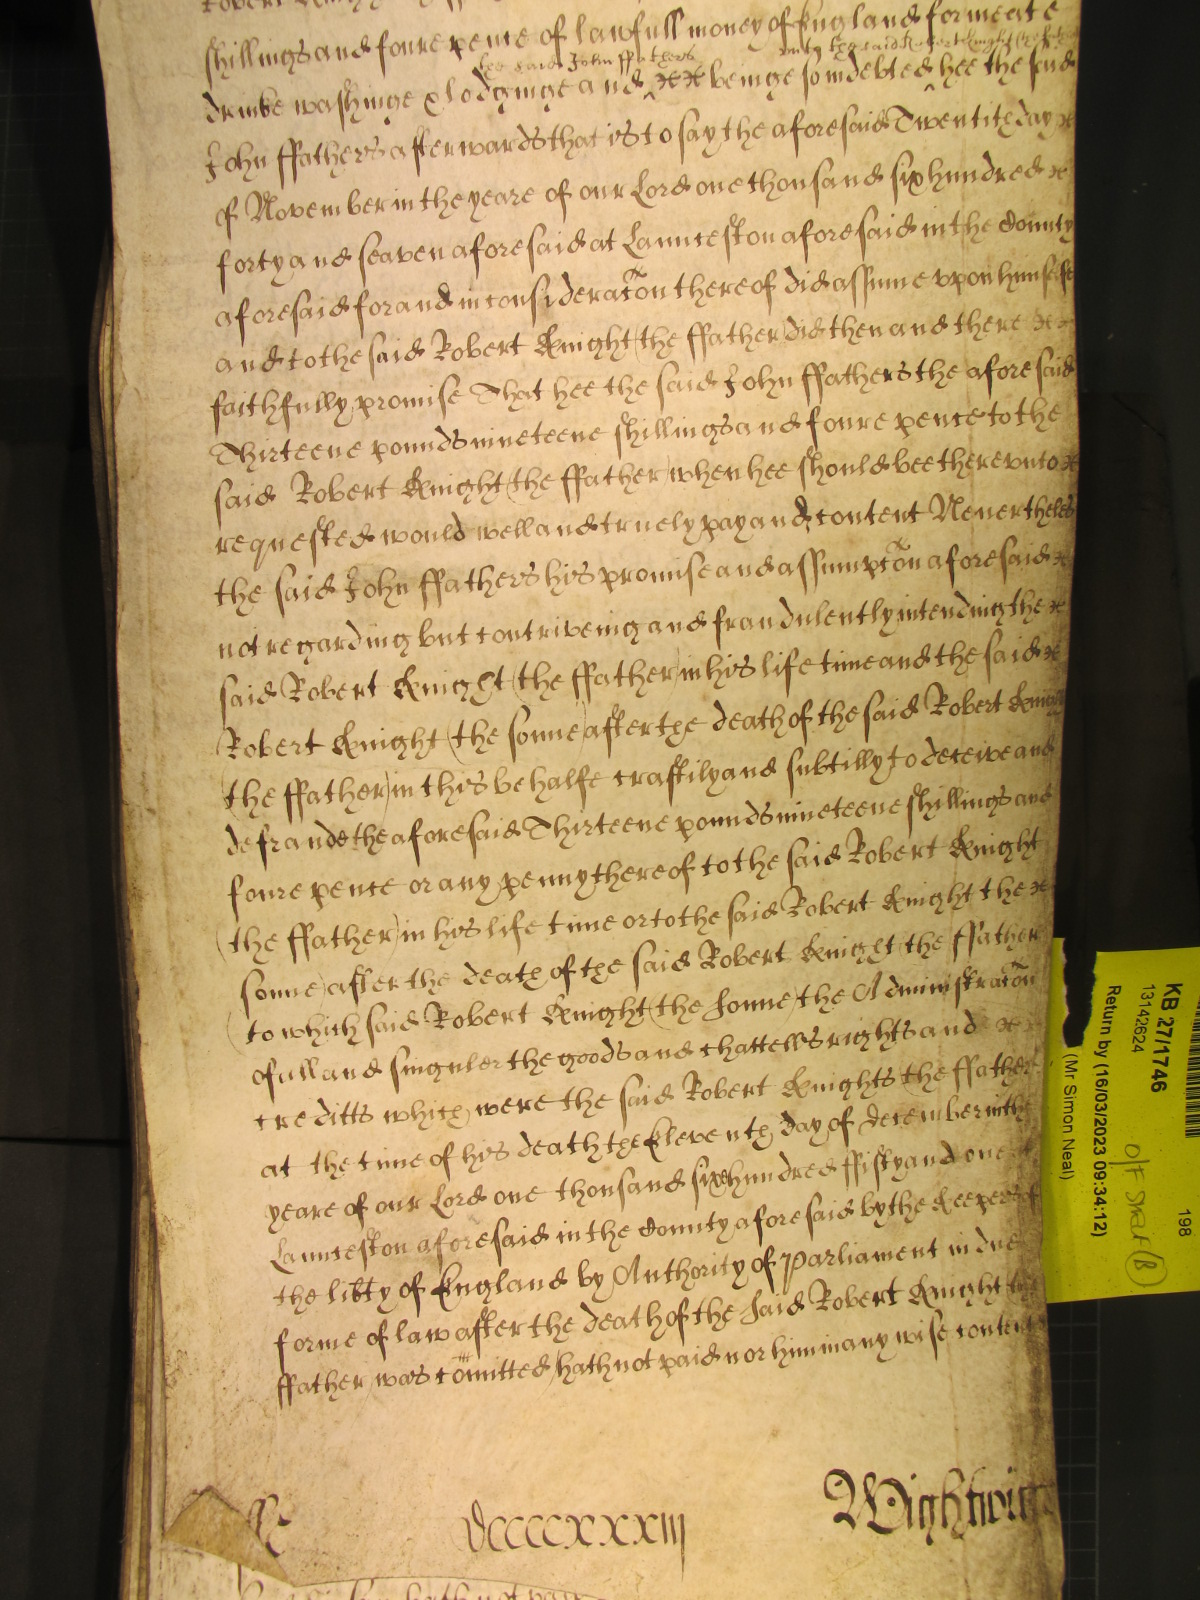 shillings and foure pence of lawfull money of England for meate
the said John ffathers unto the said Robert Knight (the father)
drinke washinge & lodginge and beinge so indebted hee the said
John ffathers afterwards that is to say the aforesaid Twentith day
of November in the yeare of our Lord one thousand six hundred
forty and seaven aforesaid at Launceston aforesaid in the County
aforesaid for and in consideracon thereof did assume upon himselfe
and to the said Robert Knight (the ffather) did then and there
faithfully promise That hee the said John ffathers the aforesaid
Thirteene pounds nineteene shillings and foure pence to the
said Robert Knight (the ffather) when hee should bee thereunto
requested would well and truely pay and content Neverthelesse
the said John ffathers his promise and assumpcon aforesaid
not regarding but contriveing and fraudulently intending the
said Robert Knight (the ffather) in his life time and the said
Robert Knight (the sonne) after the death of the said Robert Knight
(the ffather) in this behalfe craftily and subtilly to deceive and
defraude the aforesaid Thirteene pounds nineteene shillings and
foure pence or any penny thereof to the said Robert Knight
(the ffather) in his life time or to the said Robert Knight the
sonne) after the death of the said Robert Knight (the ffather
(to which said Robert Knight (the sonne) the Administracon
of all and singuler the goods and chattells rights and
creditts which were the said Robert Knights (the ffather)
at the time of his death the Eleventh day of December in the
yeare of our Lord one thousand six hundred ffifty and one
Launceston aforesaid in the County aforesaid by the Keepers of
the libty of England by Authority of Parliament in due
forme of law after the death of the said Robert Knight the
ffather) was comitted) hath not paid nor him in any wise contented
DCCCCXXXIII
Wightwick
KB 27/1746
13142624
Return by (16/03/2023 09:34:12)
(Mr Simon Neal)
198